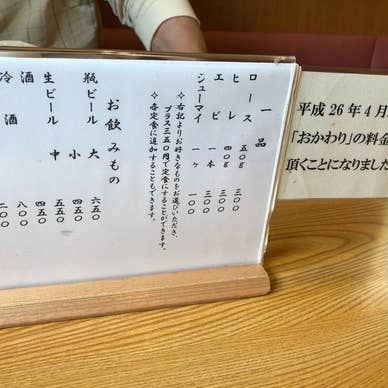 一品
ロース 五〇g 三〇〇
ヒレ 四〇g 三〇〇
エビ 一本 三〇〇
シューマイ 一ヶ 一〇〇
✧右記よりお好きなものをお選びいただき、
プラス三五〇円で定食にすることができます。
✧各定食に追加することもできます。
お飲みもの
瓶ビール 大 六五〇
小 四五〇
生ビール 中 四五〇
酒
冷酒
平成26年4月
「おかわり」の料金
頂くことになりました